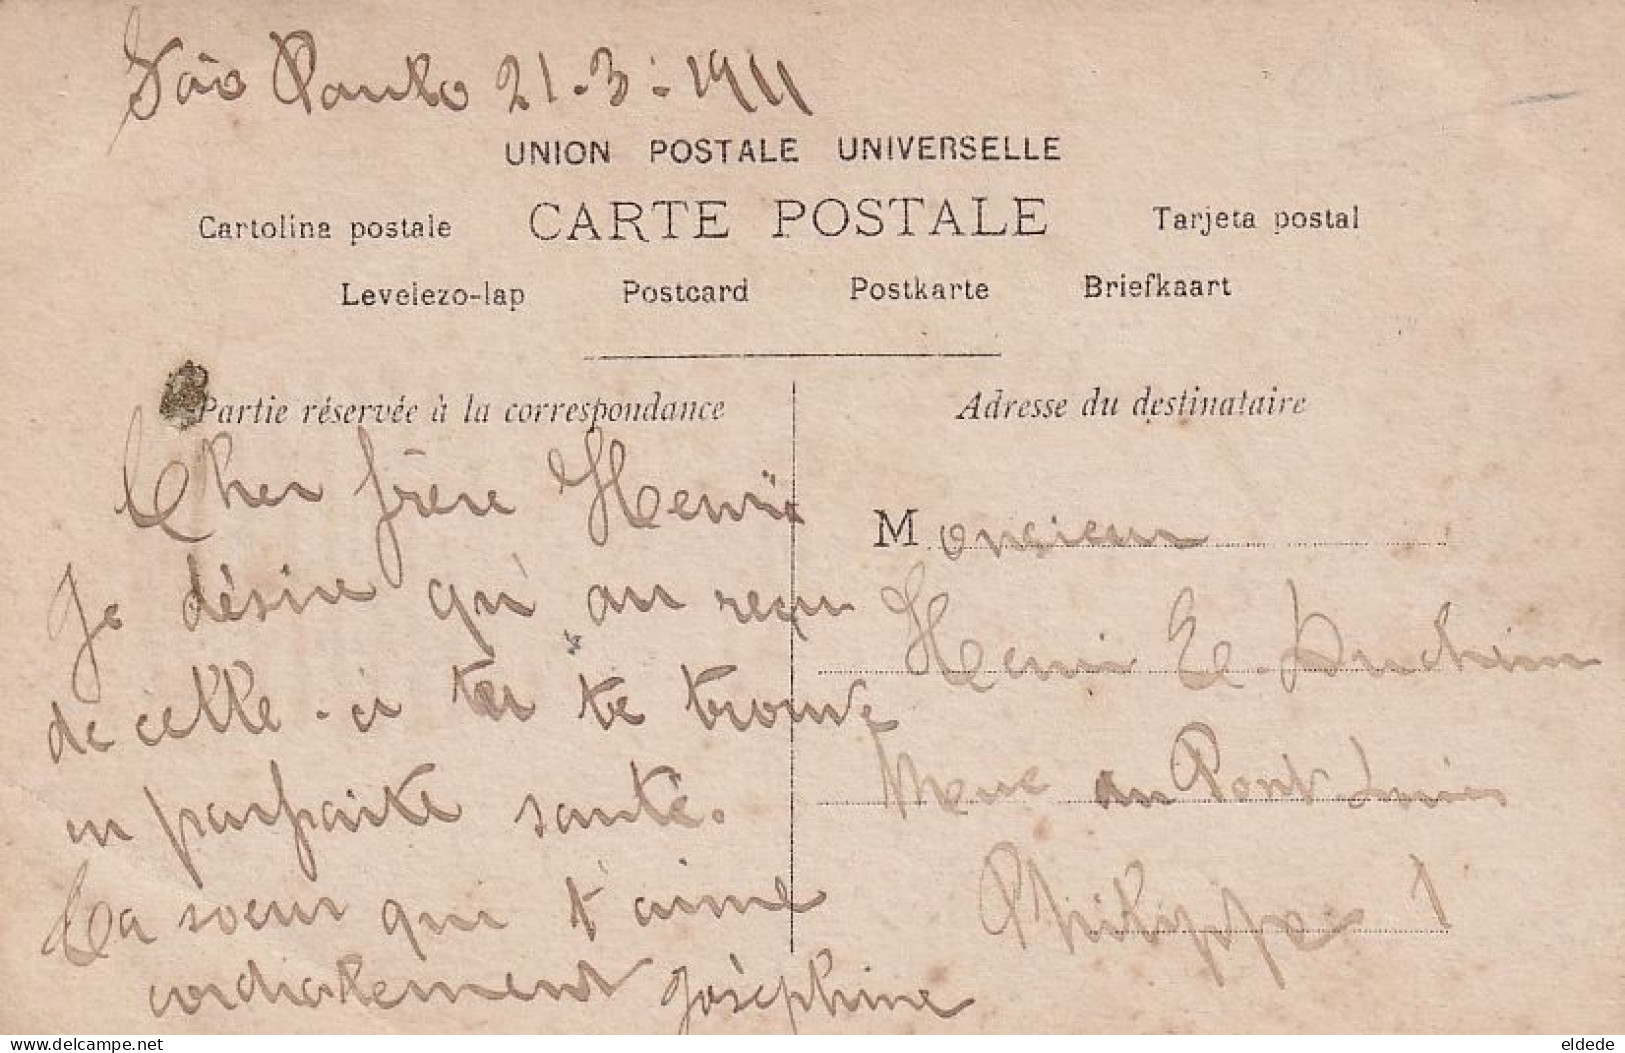 São Paulo 21.3.1911
UNION POSTALE UNIVERSELLE
Cartolina postale CARTE POSTALE Tarjeta postal
Levelezo-lap Postcard Postkarte Briefkaart
Partie réservée à la correspondance
Cher frère Henri
Je désire qu'au reçu
de celle-ci tu te trouve
en parfaite santé.
Ta soeur qui t'aime
cordialement Joséphine
Adresse du destinataire
Monsieur
Henri E.
au Pont
Philippe 1
eldede